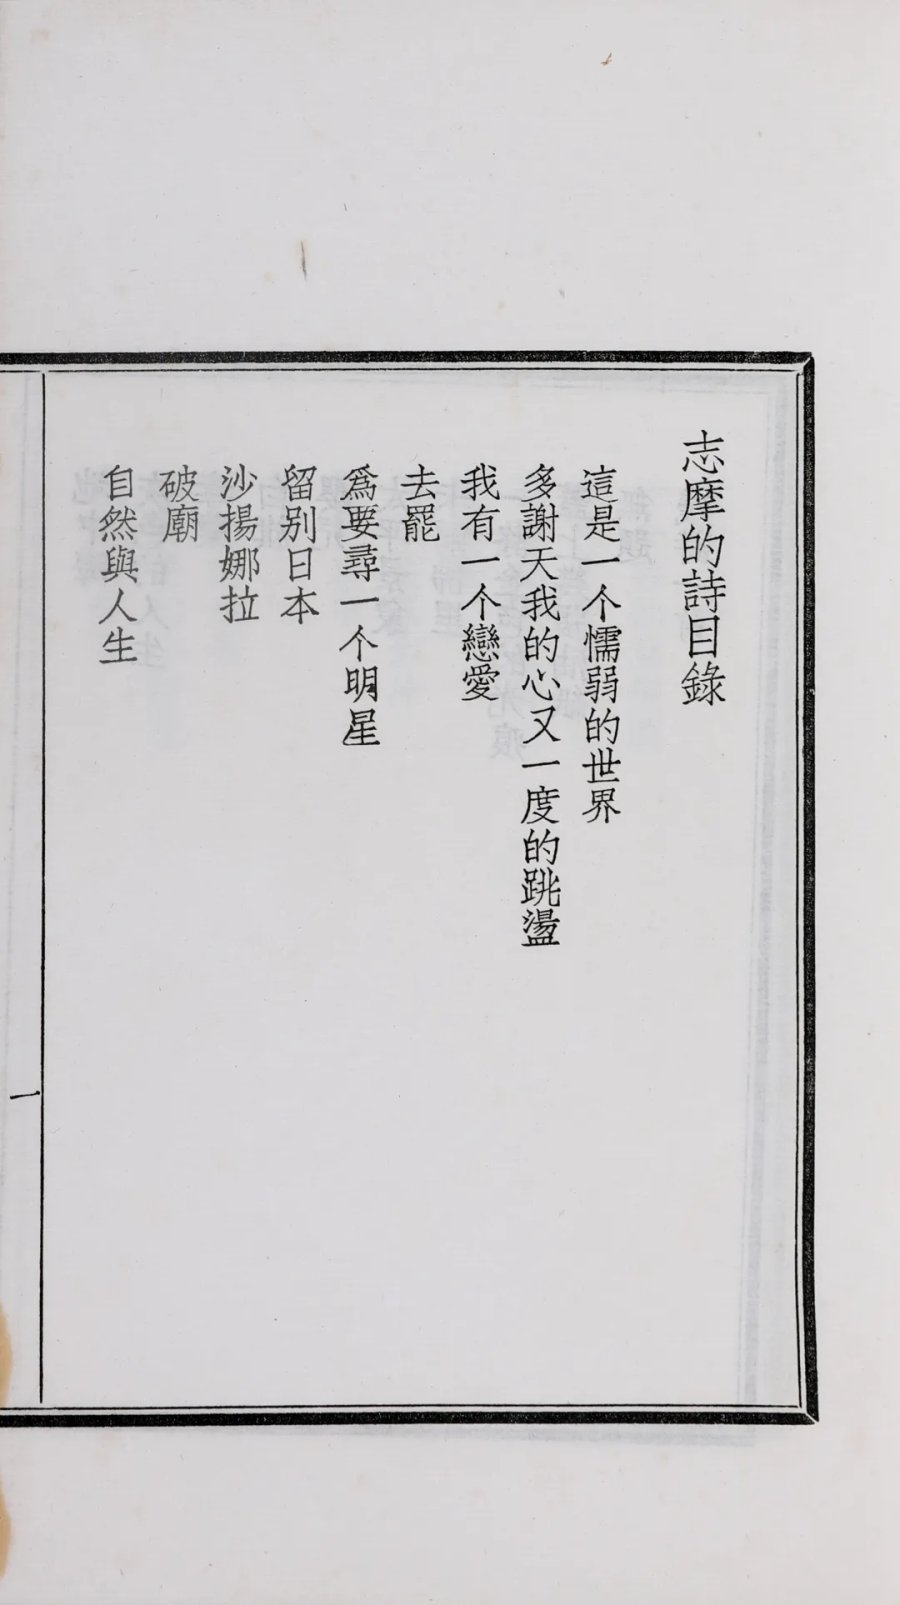 志摩的詩目錄
這是一个懦弱的世界
多謝天我的心又一度的跳盪
我有一个戀愛
去罷
爲要尋一个明星
留别日本
沙揚娜拉
破廟
自然與人生
一